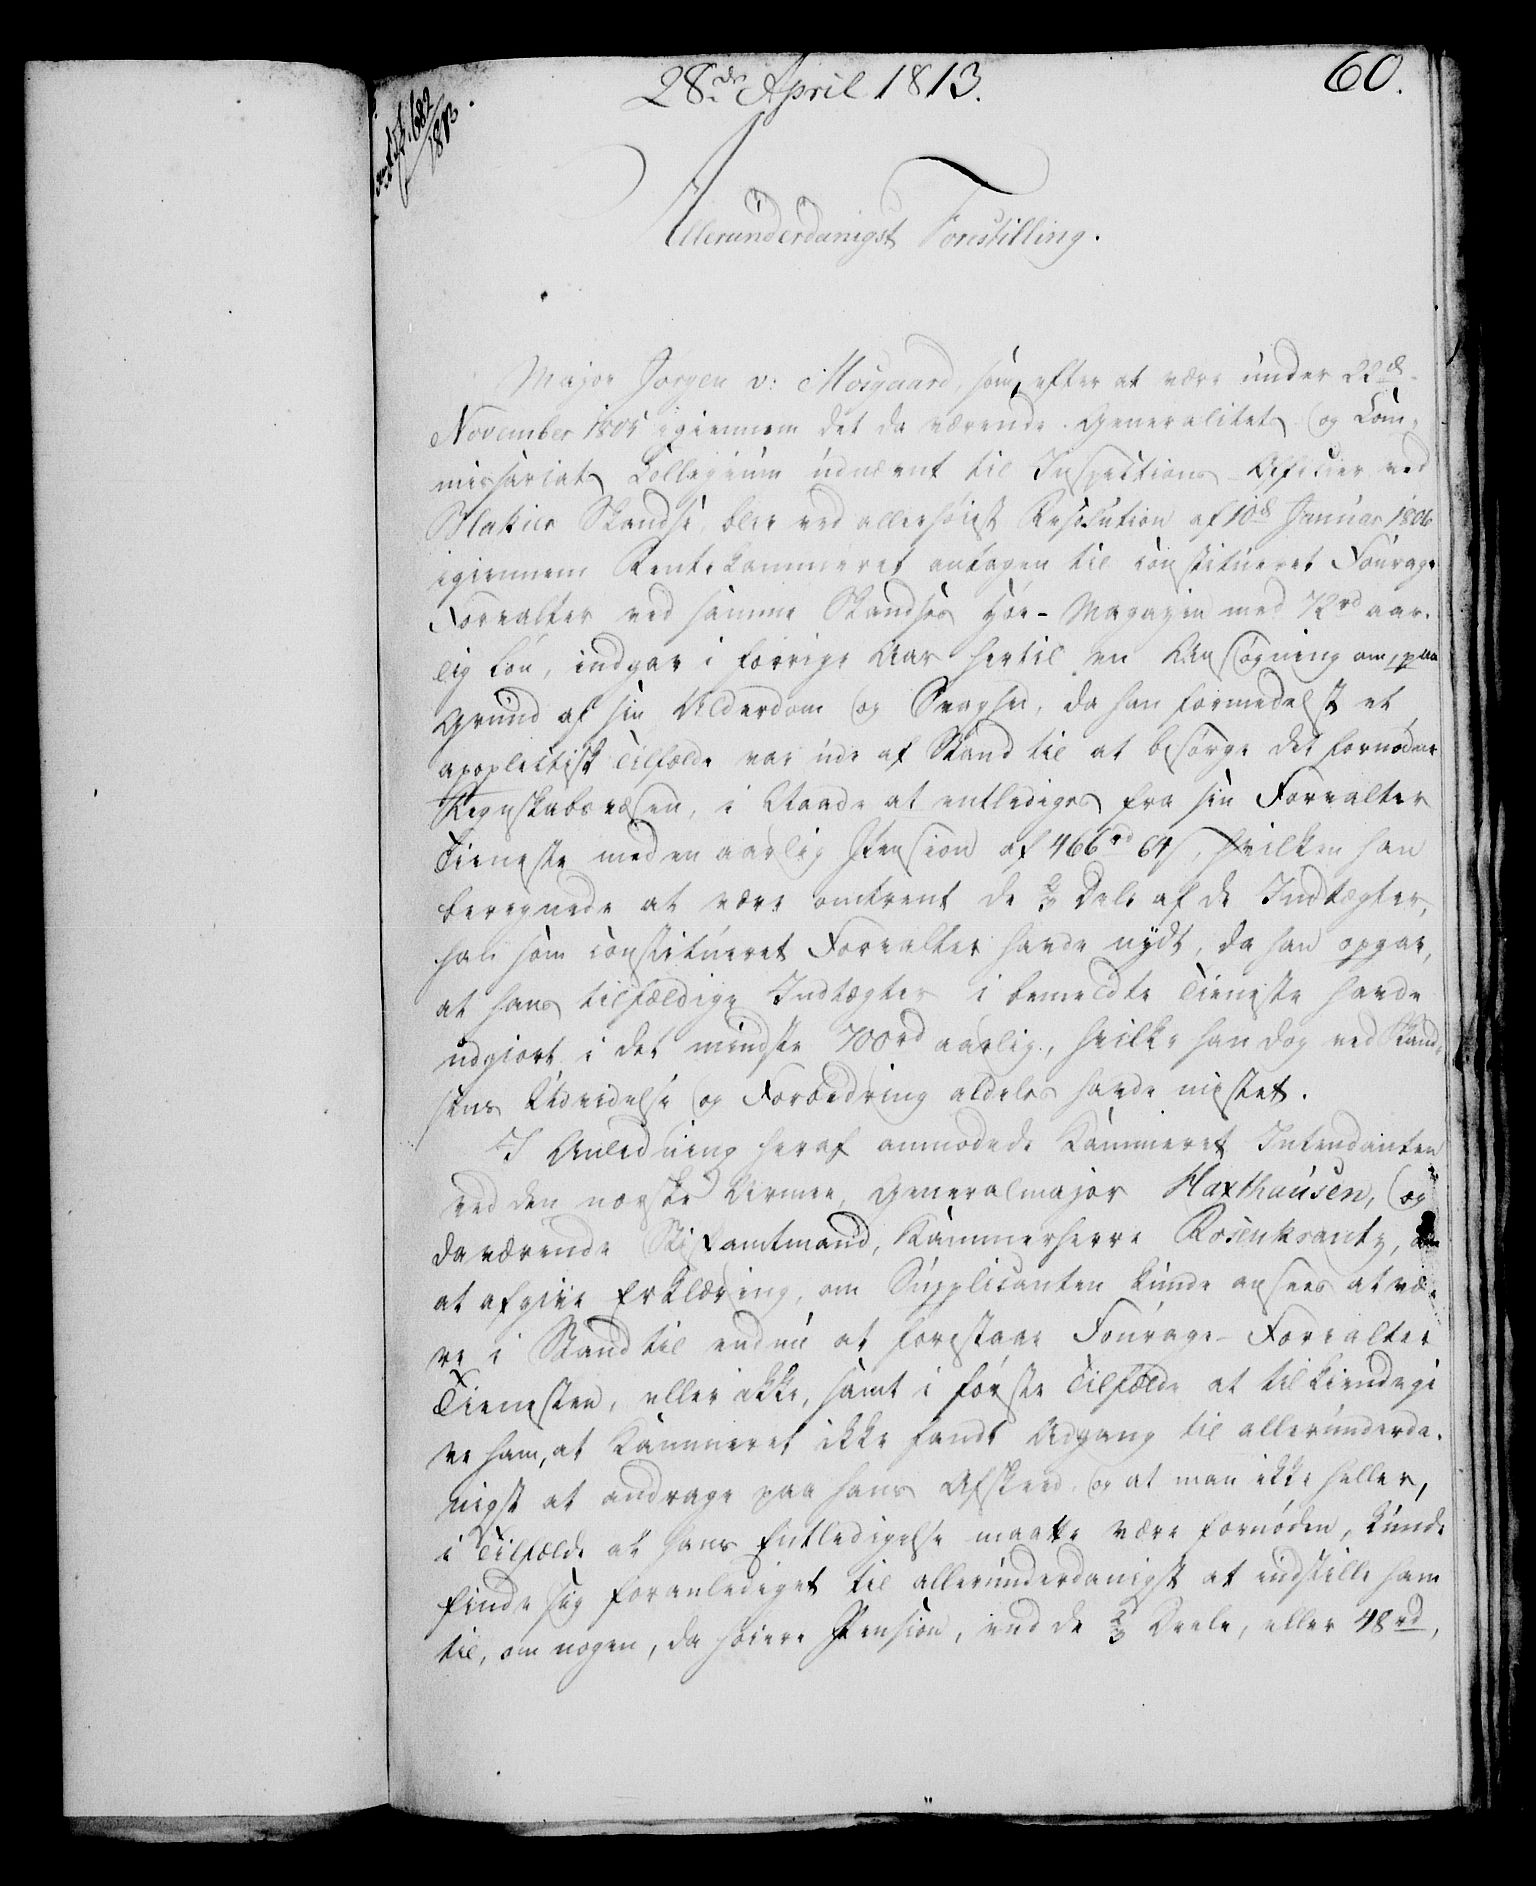 28.de April 1813.
60.
682
1813.
Allerunderdanigst Forestilling.
Major Jørgen v: Mosgaard, som, efter at være under 22de
November 1805 igiennem det da værende Generalitets og Com-
missariats Collegium udnævnt til Inspections-Officier ved
Blakier Skandse, blev ved allerhøiest Resolution af 10de Januar 1806
igiennem Rentekammeret antagen til constitueret Fourage
Forvalter ved samme Skandses Høe-Magazin med 72 rd aar-
lig Løn, indgav i forrige Aar hertil en Ansøgning om, paa
Grund af sin Alderdom og Svaghed, da han formedelst et
apoplectisk Tilfælde var ude af Stand til at besørge det fornødne
Regnskabsvæsen, i Naade at entlediges fra sin Forvalter
Tieneste med en aarlig Pension af 466 rd 64 s, hvilken han
beregnede at være omtrent de 2/3 Dele af de Indtægter,
han som constitueret Forvalter havde nydt, da han opgav,
at hans tilfældige Indtægter i bemeldte Tieneste havde
udgiort i det mindste 700 rd aarlig, hvilke han dog ved Skand-
sens Udvidelse og Forbedring aldeles havde mistet.
I Anledning heraf anmodede Kammeret Intendanten
ved den norske Armee, Generalmajor Haxthausen, og
daværende Stiftamtmand, Kammerherre Rosenkrantz, om
at afgive Erklæring, om Supplicanten kunde ansees at væ-
re i Stand til endnu at forestaae Fourage-Forvalter
Tienesten, eller ikke, samt i første Tilfælde at tilkiendegi
ve ham, at Kammeret ikke fandt Adgang til allerunderda-
nigst at andrage paa hans Afskeed, og at man ikke heller,
i Tilfælde at hans Entledigelse maatte være fornøden, kunde
finde sig foranlediget til allerunderdanigst at indstille ham
til, om nogen, da høiere Pension, end de 2/3 Deele, eller 48 rd,